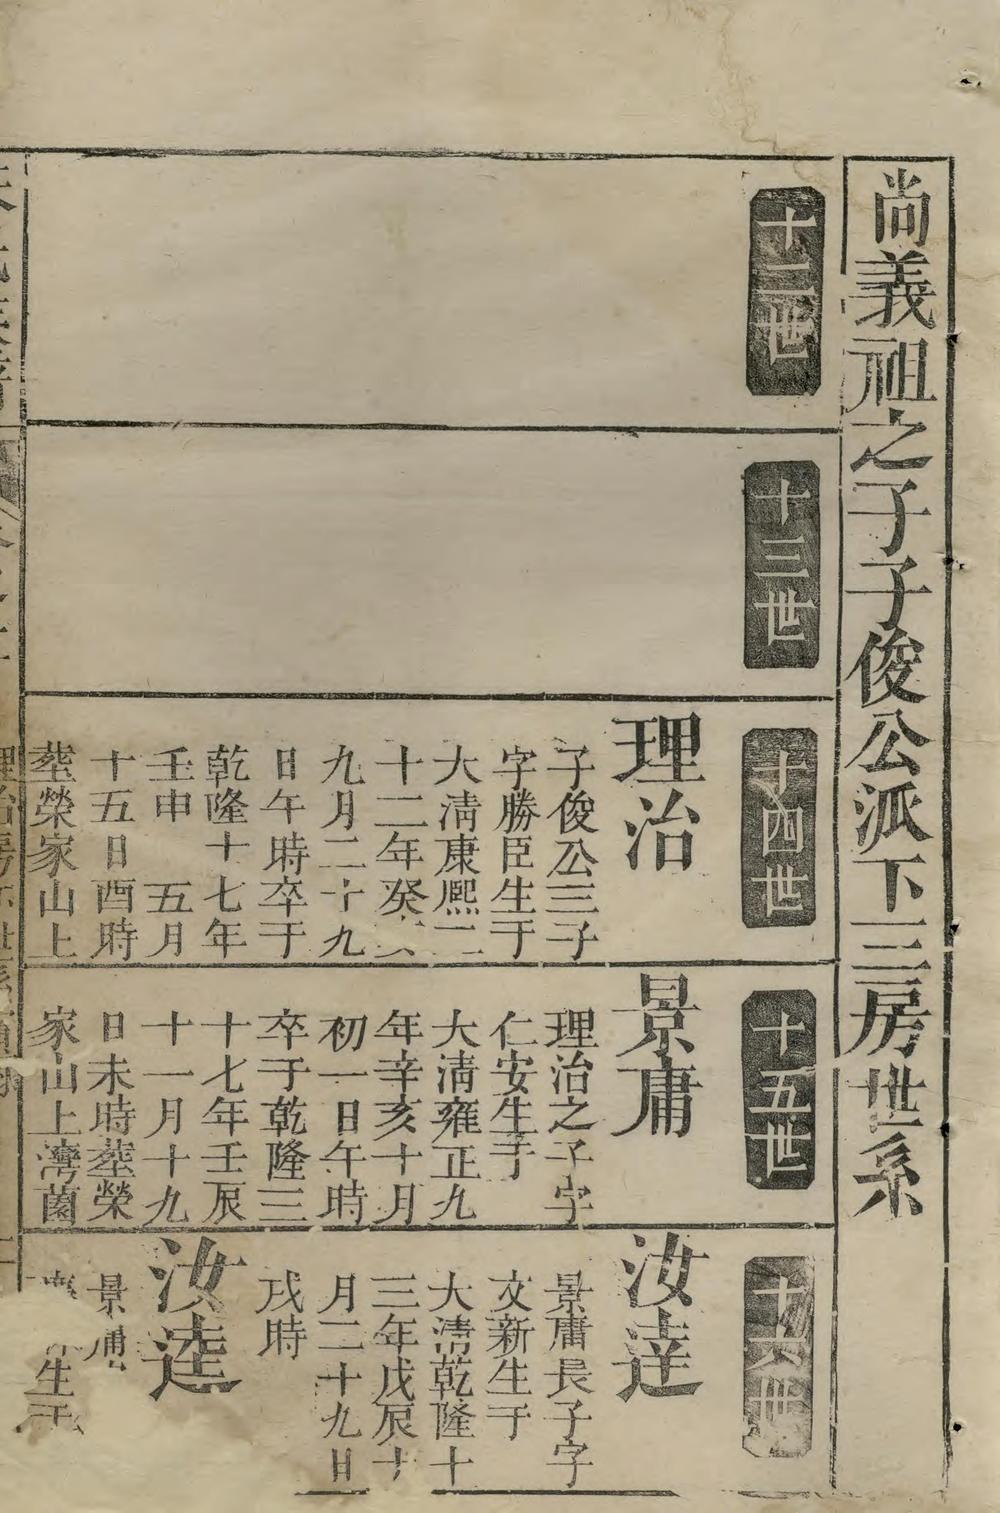 尚義祖之子子俊公派下三房世系
十二世
十三世
十四世
理治
子俊公三子
字勝臣生于
大淸康熈二
十二年癸
九月二十九
日午時卒于
乾隆十七年
壬申 五月
十五日酉時
塟榮家山上
十五世
景庸
理治之子字
仁安生于
大淸雍正九
年辛亥十月
初一日午時
卒于乾隆三
十七年壬辰
十一月十九
日未時塟榮
家山上灣薗
十六世
汝達
景庸長子字
文新生于
大淸乾隆十
三年戊辰十
月二十九日
戌時
汝逵
景庸
生于